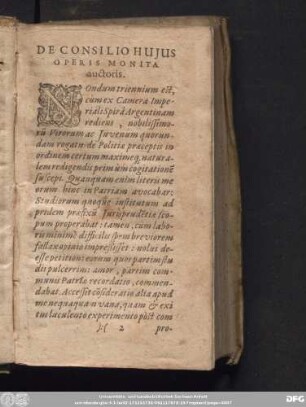 DE CONSILIO HUJUS
OPERIS MONITA
auctoris.
NOndum triennium est,
cum ex Camera Impe-
riali Spirâ Argentinam
redieus, nobilissimo-
rū Virorum ac Juvenum quorun-
dam rogatu de Politiæ præceptis in
ordinem certum maximeq; natura-
lem redigendis primùm cogitationē
suscepi. Quanquam enim itersi me-
orum hinc in Patriam avocabar:
Studiorum quoque institutum ad
pedem præfixū Jurisprudētiæ sco-
pum properabat: tamen, cum labo-
ris minimè difficilis spem breviorem
fallax opinio impressisset: nolui de-
esse petitioni eorum quos partim stu-
dii pulcerrimi amor, partim com-
munis Patriæ recordatio, commen-
dabat. Accessit cōsideratio alta apud
me neq;uaquam vana, quam & exi-
tu luculento experimento pōst com-
2 pro-